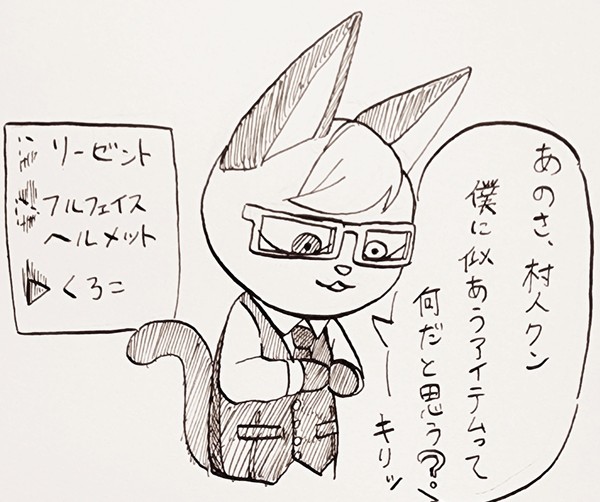 あのさ、村人クン
僕に似あうアイテムって
何だと思う?
キリッ
リーゼント
フルフェイス
ヘルメット
くろこ